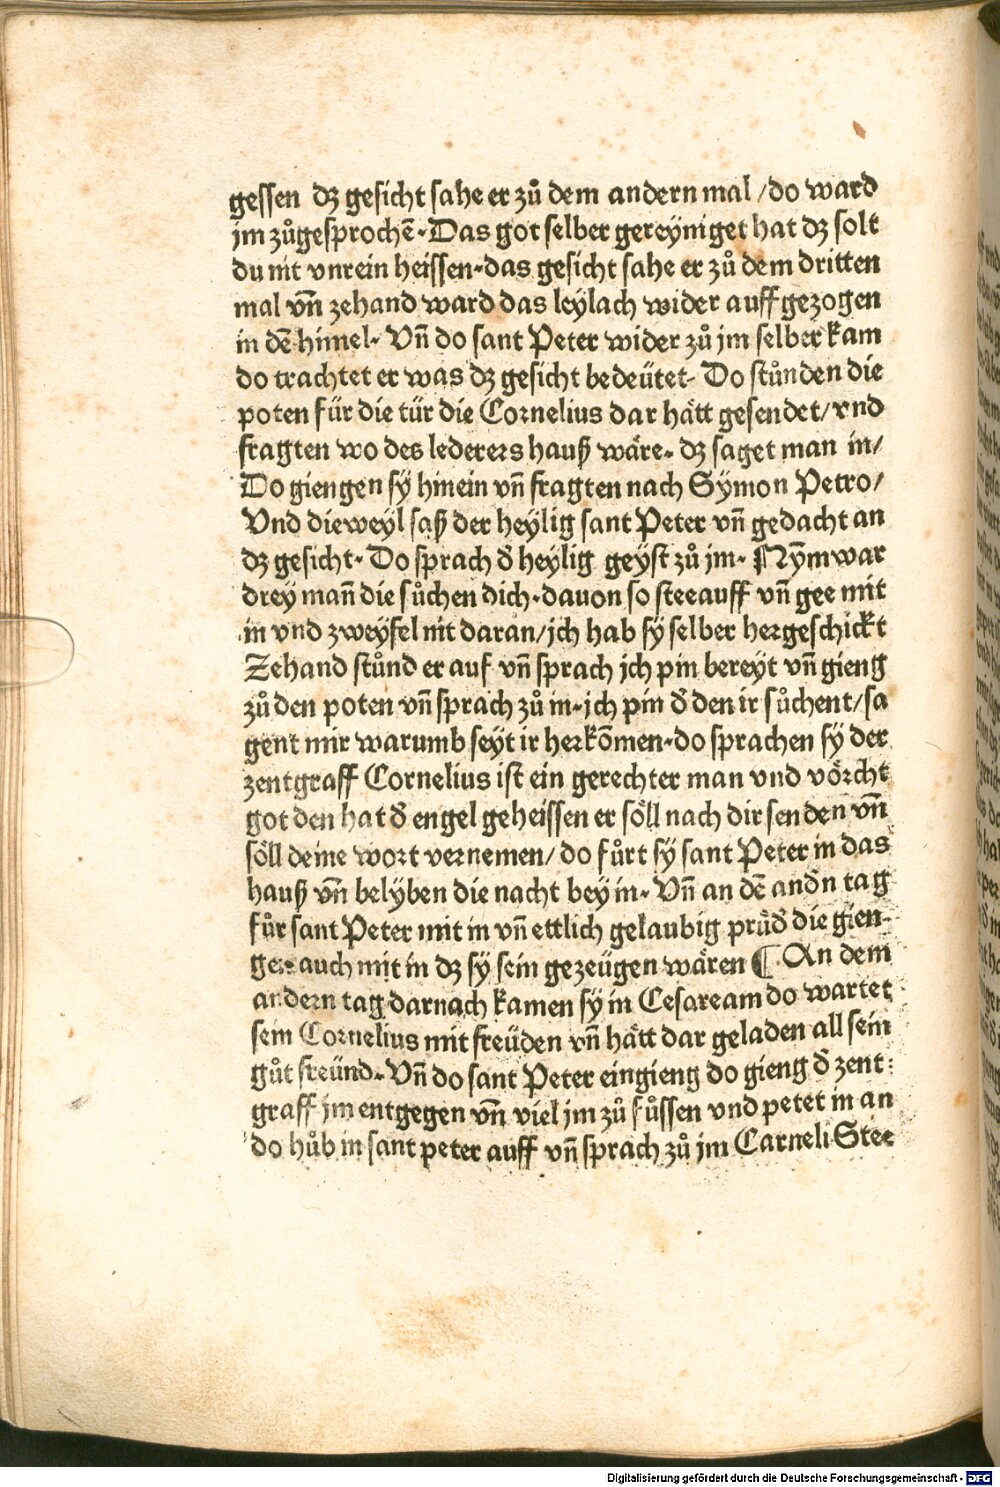 gessen dz gesicht sahe er zů dem andern mal / do ward
jm zůgesprochē. Das got selber gereyniget hat dz solt
du nit vnrein heissen. das gesicht sahe er zů dem dritten
mal vn̄ zehand ward das leylach wider auff gezogen
in dē himel. Vn̄ do sant Peter wider zů jm selber kam
do trachtet er was dz gesicht bedeütet. Do stůnden die
poten für die tür die Cornelius dar hätt gesendet / vnd
fragten wo des lederers hauß wäre. dz saget man in /
Do giengen sÿ hinein vn̄ fragten nach Sÿmon Petro /
Vnd dieweyl saß der heylig sant Peter vn̄ gedacht an
dz gesicht. Do sprach d̄ heylig geÿst zů jm. Nym̄ war
drey man̄ die sůchen dich. dauon so stee auff vn̄ gee mit
in vnd zweyfel nit daran / jch hab sÿ selber hergeschickt
Zehand stůnd er auf vn̄ sprach jch pin bereÿt vn̄ gieng
zů den poten vn̄ sprach zů in. jch pin d̄ den ir sůchent / sa
gent mir warumb seyt ir herkōmen. do sprachen sÿ der
zentgraff Cornelius ist ein gerechter man vnd vörcht
got den hat d̄ engel geheissen er söll nach dir senden vn̄
söll deine wort vernemen / do fůrt sÿ sant Peter in das
hauß vn̄ belyben die nacht bey in. Vn̄ an dē and̄n tag
fůr sant Peter mit in vn̄ ettlich gelaubig prüd̄ die gien-
gen auch mit in dz sÿ sein gezeügen wären ¶ An dem
andern tag darnach kamen sÿ in Cesaream do wartet
sein Cornelius mit freüden vn̄ hätt dar geladen all sein
gůt freünd. Vn̄ do sant Peter eingieng do gieng d̄ zent:
graff jm entgegen vn̄ viel jm zů fůssen vnd petet in an
do hůb in sant peter auff vn̄ sprach zů jm Carneli Stee
Digitalisierung gefördert durch die Deutsche Forschungsgemeinschaft - DFG